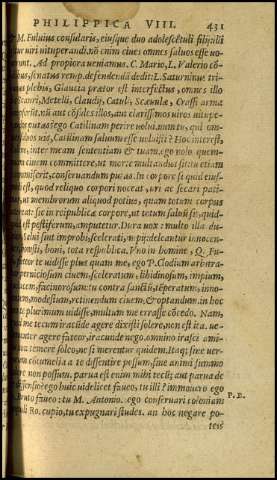 PHILIPPICA VIII. 431
M. Fuluius consularis, eiusque duo adolescētuli filij illi
uituperandi. nō enim ciues omnes saluos esse uo
Ad propiora ueniamus. C. Mario, L. Valerio cō
senatus remp. defendendā dedit: L. Saturninus tri
plebis, Glaucia prætor est interfectus, omnes illo
Scauri, Metelli, Claudij, Catuli, Scæuolæ, Crassi arma
aut cōsules illos, aut clarissimos uiros uitupe
ego Catilinam perire uolui. num tu, qui om
uis, Catilinam saluum esse uoluisti? Hoc interest,
inter meam sententiam & tuam. ego nolo quen
ciuem committere, ut morte multandus sit: tu etiam
conseruandum putas. in corpore si quid eius
est, quod reliquo corpori noceat, uri ac secari pati
ut membrorum aliquod potius, quam totum corpus
sic in reipublicæ corpore, ut totum saluū sit, quid
est pestiferum, amputetur. Dura uox: multo illa du
salui sint improbi, scelerati, impij: deleantur innocen
honesti, boni, tota respublica. Vno in homine, Q. Fu
te uidisse plus quam me. ego P. Clodium arbitra
perniciosum ciuem. sceleratum, libidinosum, impium,
facinorosum: tu contra sanctū, tēperatum, innocen
modestum, retinendum ciuem, & optandum. in hoc
te plurimum uidisse, multum me errasse cōcedo. Nam
me tecum iracūde agere dixisti solere, non est ita. ue
agere fateor, iracunde nego. omnino irasci ami
temere soleo, ne si merentur quidem. Itaque sine uer
contumelia a te dissentire possum, sine animi summo
non possum. parua est enim mihi tecū, aut parua de
dissensio? ego huic uidelicet faueo, tu illi? immouero ego
Bruto faueo: tu M. Antonio. ego conseruari coloniam P. R.
cupio, tu expugnari studes. an hoc negare po
teis